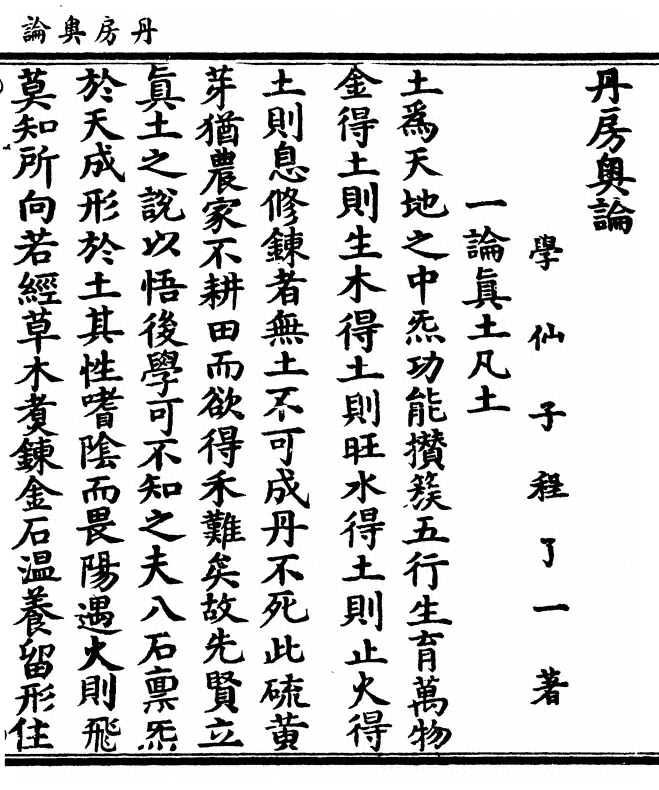 丹房奧論
丹房奧論
學仙子程了一著
一論眞土凡土
土爲天地之中炁功能攢簇五行生育萬物
金得土則生木得土則旺水得土則止火得
土則息修鍊者無土不可成丹不死此硫黃
芽猶農家不耕田而欲得禾難矣故先賢立
眞土之說以悟後學可不知之夫八石稟炁
於天成形於土其性嗜陰而畏陽遇火則飛
莫知所向若經草木煑鍊金石温養留形住